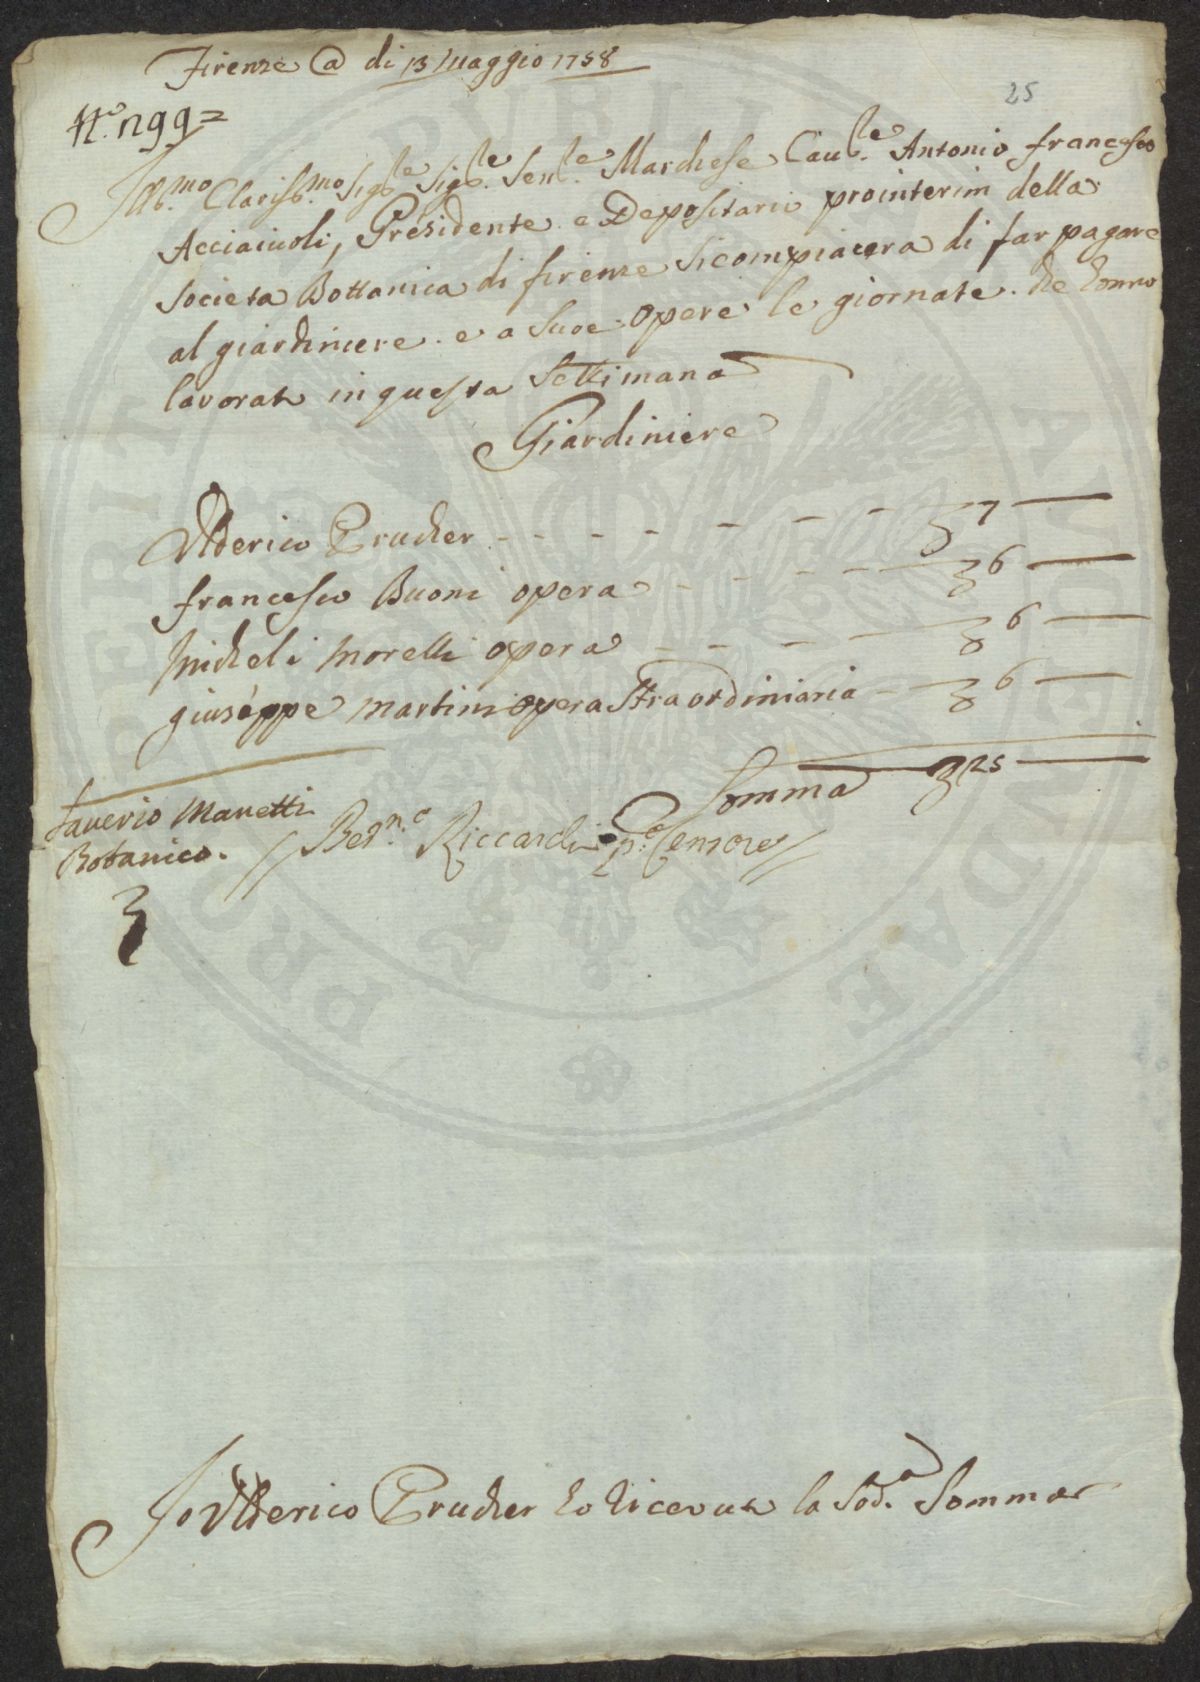 Firenze @ di 13 Maggio 1758
25
N.º 1199=
Ill.mo Clariss.mo Sig.le Sig.le Sen.le Marchese Cau.le Antonio francesco
Acciaiuoli, Presidente e Depositario prointerim della
Societa Bottanica di firenze si compiacera di far pagare
al giardiniere e a Suoe Opere le giornate che hanno
lavorate in questa Settimana
Giardiniere
Ulderico Prucher - - - - - - - 7 —
francesco Buoni opera - - - - 6 —
Micheli Morelli opera - - - 6 —
giuseppe Martini opera Straordiniaria - 6 —
Somma 25 —
Saverio Manetti
Botanico.
// Ber.no Riccardi p.º Censore //
Io Ulderico Prucher ho ricevute la Sod.a Somma